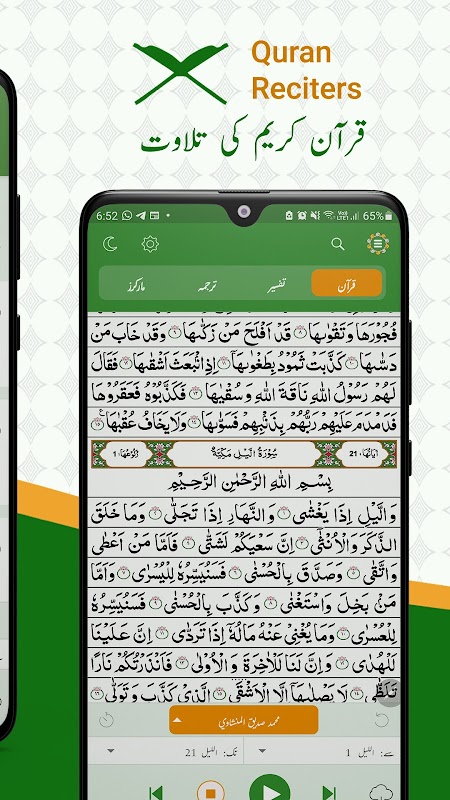 Quran
Reciters
قرآن کریم کی تلاوت
6:52 65%
قرآن تفسیر ترجمہ مارکرز
فُجُوْرَهَا وَتَقْوٰىهَا ۝۸ قَدْ اَفْلَحَ مَنْ زَكّٰىهَا ۝۹ وَقَدْ خَابَ مَنْ
دَسّٰىهَا ۝۱۰ كَذَّبَتْ ثَمُوْدُ بِطَغْوٰىهَا ۝۱۱ اِذِ انْۢبَعَثَ اَشْقٰىهَا ۝۱۲ فَقَالَ
لَهُمْ رَسُوْلُ اللّٰهِ نَاقَةَ اللّٰهِ وَسُقْيٰهَا ۝۱۳ فَكَذَّبُوْهُ فَعَقَرُوْهَا
فَدَمْدَمَ عَلَيْهِمْ رَبُّهُمْ بِذَنْۢبِهِمْ فَسَوّٰىهَا ۝۱۴ وَلَا يَخَافُ عُقْبٰهَا ۝۱۵
اٰيَاتُهَا 21 سُوْرَةُ الَّيْلِ مَكِّيَّةٌ رُكُوْعُهَا 1
بِسْمِ اللّٰهِ الرَّحْمٰنِ الرَّحِيْمِ
وَالَّيْلِ اِذَا يَغْشٰى ۝۱ وَالنَّهَارِ اِذَا تَجَلّٰى ۝۲ وَمَا خَلَقَ
الذَّكَرَ وَالْاُنْثٰٓى ۝۳ اِنَّ سَعْيَكُمْ لَشَتّٰى ۝۴ فَاَمَّا مَنْ اَعْطٰى
وَاتَّقٰى ۝۵ وَصَدَّقَ بِالْحُسْنٰى ۝۶ فَسَنُيَسِّرُهٗ لِلْيُسْرٰى ۝۷ وَاَمَّا
مَنْۢ بَخِلَ وَاسْتَغْنٰى ۝۸ وَكَذَّبَ بِالْحُسْنٰى ۝۹ فَسَنُيَسِّرُهٗ
لِلْعُسْرٰى ۝۱۰ وَمَا يُغْنِيْ عَنْهُ مَالُهٗٓ اِذَا تَرَدّٰى ۝۱۱ اِنَّ عَلَيْنَا
لَلْهُدٰى ۝۱۲ وَاِنَّ لَنَا لَلْاٰخِرَةَ وَالْاُوْلٰى ۝۱۳ فَاَنْذَرْتُكُمْ نَارًا
تَلَظّٰى ۝۱۴ لَا يَصْلٰىهَآ اِلَّا الْاَشْقَى ۝۱۵ الَّذِيْ كَذَّبَ وَتَوَلّٰى ۝۱۶
محمد صدیق المنشاوي
سے: الليل 1 تک: الليل 21